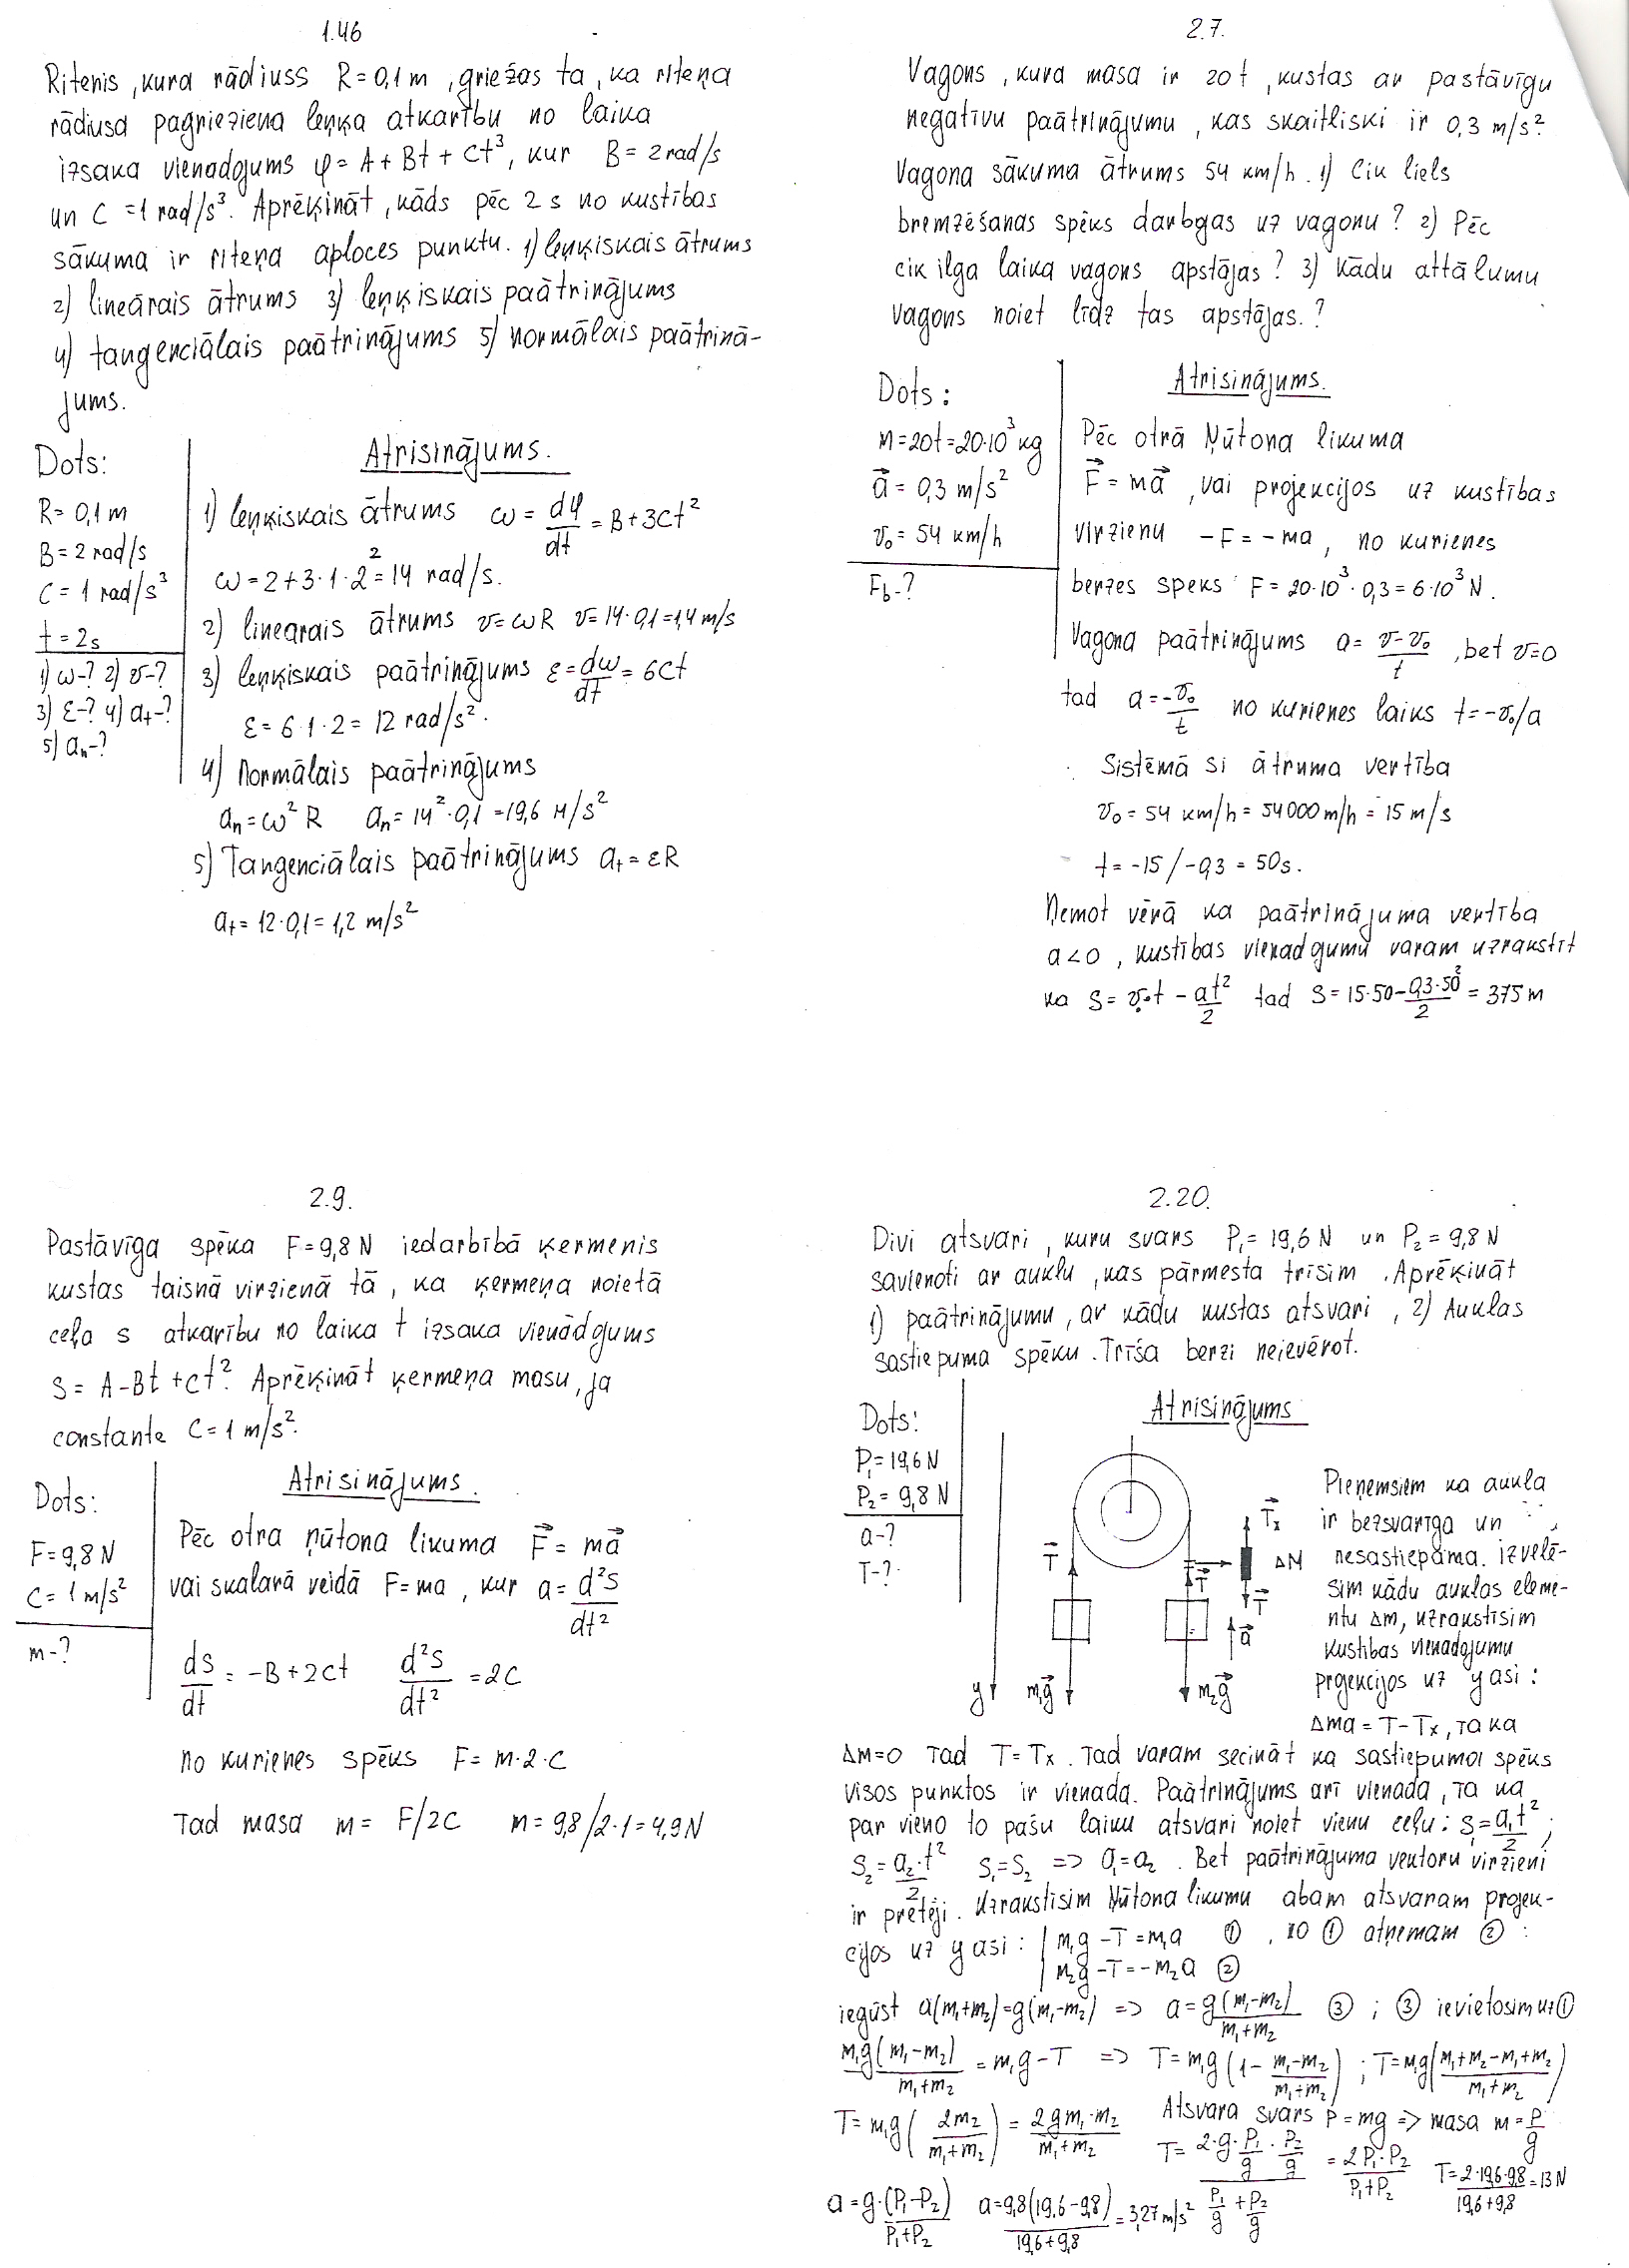 1.46
Ritenis, kura rādiuss R=0,1m, griežas ta, ka riteņa
rādiusa pagrieziena leņķa atkarību no laika
izsaka vienadojums φ=A+Bt+Ct³, kur B=2rad/s
un C=1 rad/s³. Aprēķināt, kāds pēc 2 s no kustības
sākuma ir riteņa aploces punktu. 1) leņķiskais ātrums
2) lineārais ātrums 3) leņķiskais paātrinājums
4) tangenciālais paātrinājums 5) normālais paātrinā-
jums.
Dots:
R=0,1m
B=2 rad/s
C=1 rad/s³
t=2s
1) ω-? 2) v-?
3) ε-? 4) at-?
5) an-?
Atrisinājums.
1) leņķiskais ātrums ω = dφ/dt = B+3Ct²
ω=2+3·1·2²=14 rad/s.
2) linearais ātrums v=ωR v=14·0,1=1,4 m/s
3) leņķiskais paātrinājums ε=dω/dt=6Ct
ε=6·1·2=12 rad/s².
4) Normālais paātrinājums
an=ω²R an=14²·0,1=19,6 м/s²
5) Tangenciālais paātrinājums at=εR
at=12·0,1=1,2 m/s²
2.7.
Vagons, kura masa ir 20t, kustas ar pastāvīgu
negatīvu paātrinājumu, kas skaitliski ir 0,3 m/s².
Vagona sākuma ātrums 54 km/h. 1) Cik liels
bremzēšanas spēks darbojas uz vagonu? 2) Pēc
cik ilga laika vagons apstājas? 3) Kādu attālumu
vagons noiet līdz tas apstājas.?
Dots:
m=20t=20·10³kg
a⃗=0,3 m/s²
v₀=54 km/h
Fb-?
Atrisinājums.
Pēc otrā Ņūtona likuma
F⃗=ma⃗, vai projekcijos uz kustības
virzienu -F=-ma, no kurienes
berzes speks F=20·10³·0,3=6·10³N.
Vagona paātrinājums a=(v-v₀)/t, bet v=0
tad a=-v₀/t no kurienes laiks t=-v₀/a
Sistēmā si ātruma vertība
v₀=54 km/h=54000m/h=15 m/s
t=-15/-0,3=50s.
Ņemot vērā ka paātrinājuma vertība
a<0, kustības vienadgumu varam uzrakstīt
ka S=v₀t-at²/2 tad S=15·50-0,3·50²/2=375m
2.9.
Pastāvīga spēka F=9,8N iedarbībā ķermenis
kustas taisnā virzienā tā, ka ķermeņa noietā
ceļa s atkarību no laika t izsaka vienādgums
S=A-Bt+Ct². Aprēķināt ķermeņa masu, ja
constante C=1m/s².
Dots:
F=9,8N
C=1m/s²
m-?
Atrisinājums.
Pēc otra ņūtona likuma F⃗=ma⃗
vai skalarā veidā F=ma, kur a=d²s/dt²
ds/dt=-B+2Ct d²s/dt²=2C
no kurienes spēks F=m·2·C
Tad masa m=F/2C m=9,8/2·1=4,9N
2.20.
Divi atsvari, kuru svars P₁=19,6N un P₂=9,8N
savienoti ar auklu, kas pārmesta trīsim. Aprēķināt
1) paātrinājumu, ar kādu kustas atsvari, 2) Auklas
sastiepuma spēku. Trīša berzi neievērot.
Dots:
P₁=19,6N
P₂=9,8N
a-?
T-?
Atrisinājums
T⃗
T⃗
T⃗x
ΔM
T⃗
a⃗
y
m₁g⃗
m₂g⃗
Pieņemsiem ka aukla
ir bezsvarīga un
nesastiepama. Izvelē-
sim kādu auklas eleme-
ntu Δm, uzrakstīsim
kustības vienadojumu
prgekcijos uz y asi:
Δma=T-Tx, ta ka
Δm=0 Tad T=Tx. Tad varam secināt ka sastiepumal spēks
visos punktos ir vienada. Paātrinājums arī vienada, Ta ka
par vieno to pašu laiku atsvari noiet vienu ceļu: S₁=a₁t²/2;
S₂=a₂·t²/2 S₁=S₂ => a₁=a₂. Bet paātrinājuma vektoru virzieni
ir prētēji. Uzrakstīsim Ņūtona likumu abam atsvaram projek-
cijos uz y asi: | m₁g-T=m₁a ①, no ① atņemam ②:
| m₂g-T=-m₂a ②
iegūst a(m₁+m₂)=g(m₁-m₂) => a=g(m₁-m₂)/(m₁+m₂) ③; ③ ievietosim uz ①
m₁g(m₁-m₂)/(m₁+m₂)=m₁g-T => T=m₁g(1-(m₁-m₂)/(m₁+m₂)); T=m₁g((m₁+m₂-m₁+m₂)/(m₁+m₂))
T=m₁g(2m₂/(m₁+m₂))=2gm₁·m₂/(m₁+m₂) Atsvara svars P=mg => masa m=P/g
T=(2·g·P₁/g·P₂/g)/(P₁/g+P₂/g)=2P₁·P₂/(P₁+P₂) T=2·19,6·9,8/(19,6+9,8)=13N
a=g·(P₁-P₂)/(P₁+P₂) a=9,8(19,6-9,8)/(19,6+9,8)=3,27m/s²